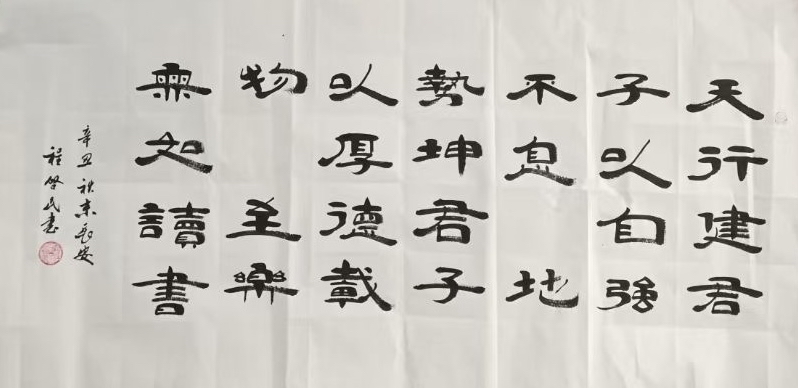 天行建君
子以自強
不息 地
勢坤君子
以厚德載
物 至樂
無如讀書
辛丑秋末長安
程 民書